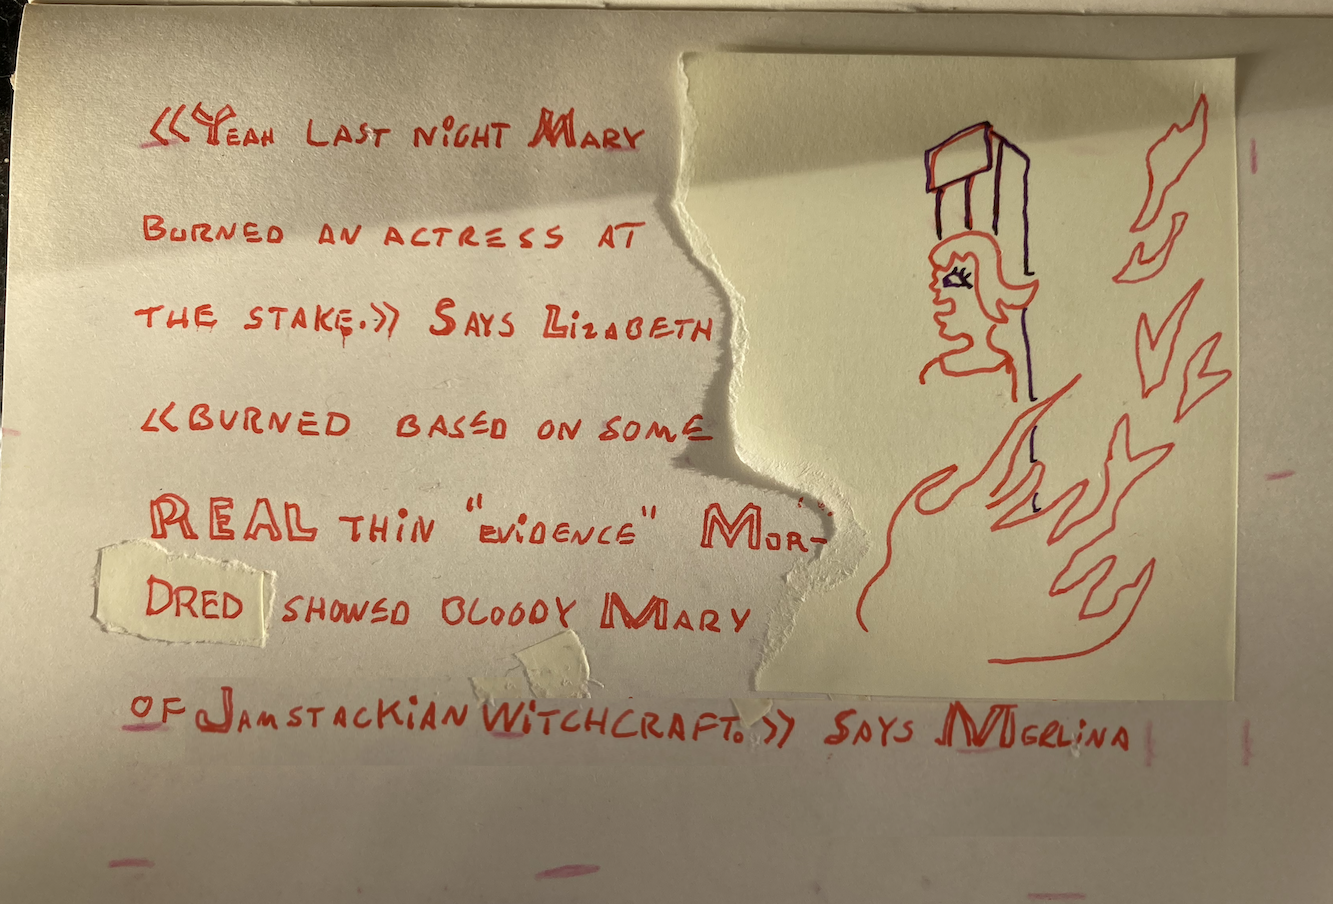 «Yeah last night Mary
Burned an actress at
the stake.» Says Lizabeth
«Burned based on some
REAL thin "evidence" Mor-
Dred showed bloody Mary
of Jamstackian Witchcraft.» Says Merlina